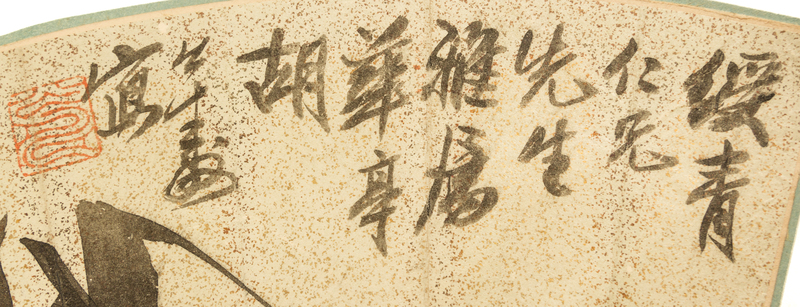 綬青
仁兄
先生
雅属
華亭
胡
公壽
寫